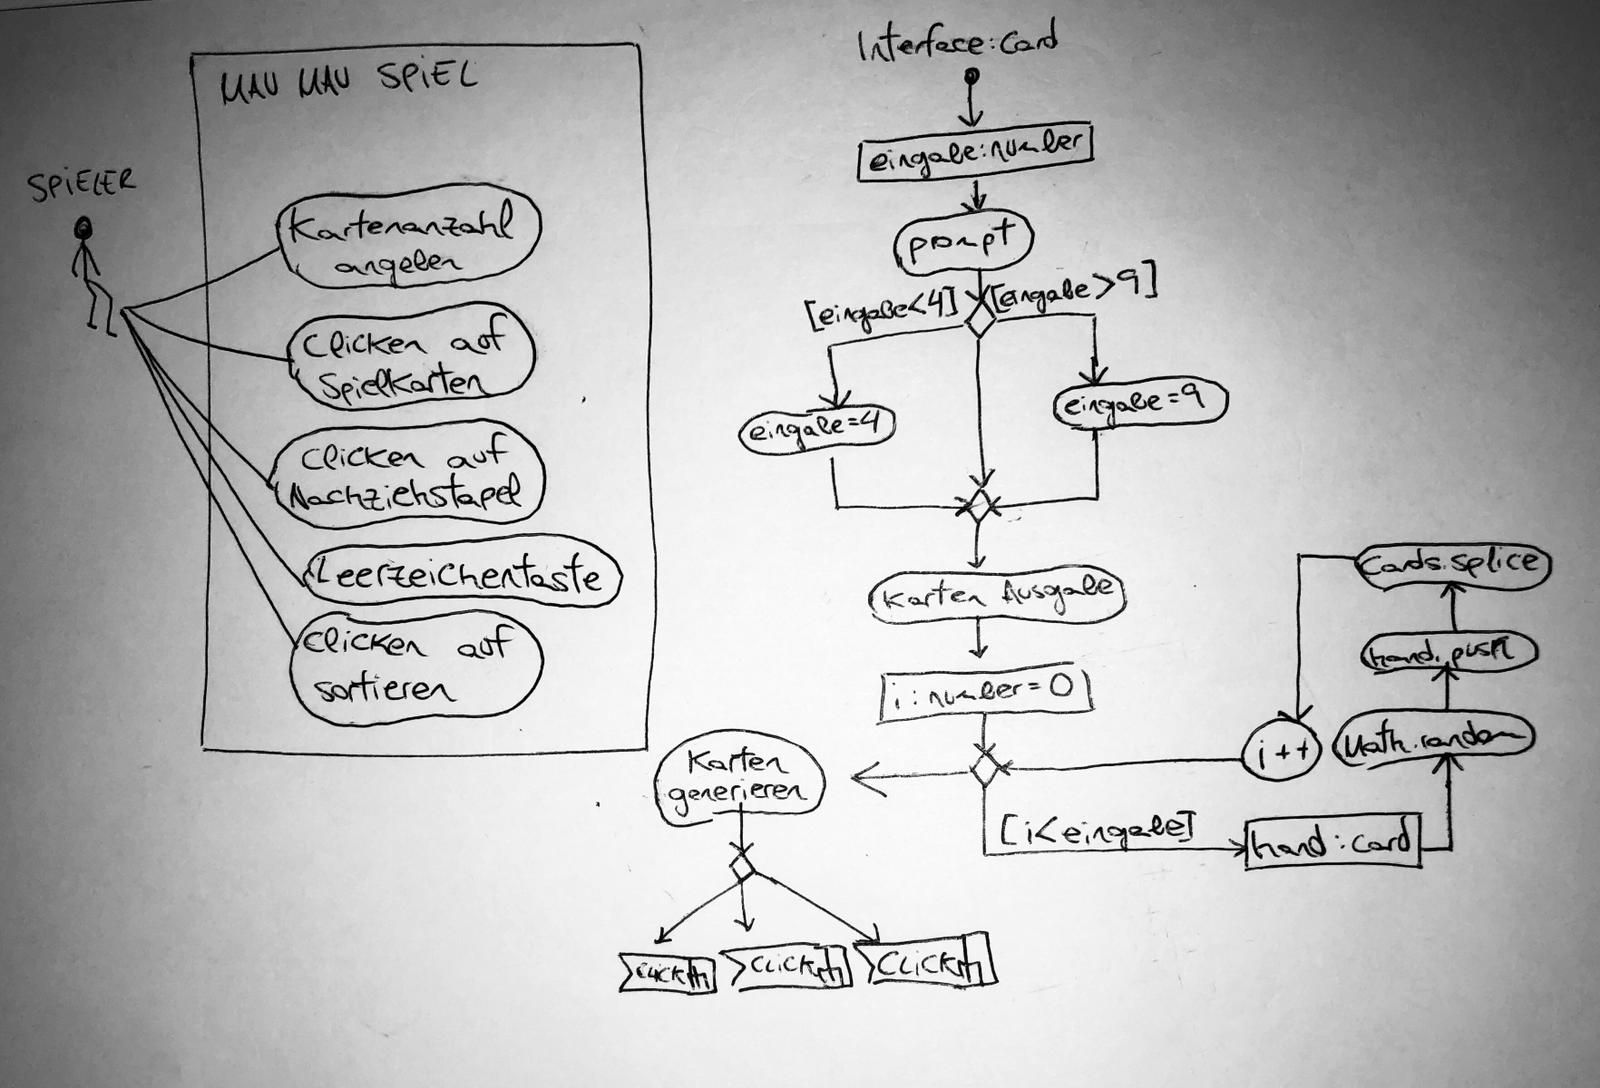 MAU MAU SPIEL
SPIELER
Kartenanzahl
angeben
Clicken auf
Spielkarten
Clicken auf
Nachziehstapel
Leerzeichentaste
Clicken auf
sortieren
Interface:Card
eingabe:number
prompt
[eingabe<4]
[eingabe>9]
eingabe=4
eingabe=9
Karten Ausgabe
i:number=0
Cards.splice
hand.push
Math.random
i++
[i<eingabe]
hand:card
Karten
generieren
CLICK
CLICK
CLICK